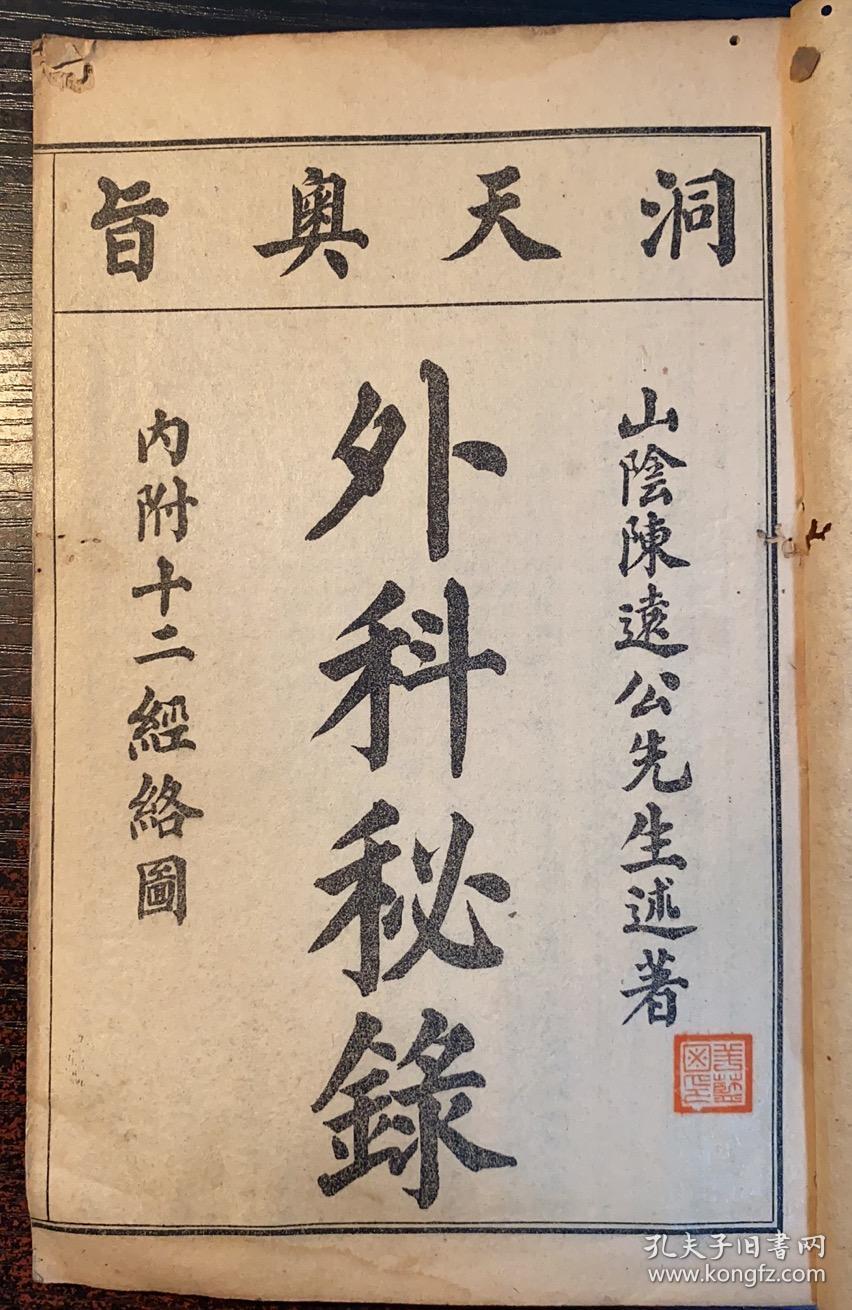 洞天奥旨
山陰陳遠公先生述著
外科秘錄
内附十二經絡圖
孔夫子旧书网
www.kongfz.com